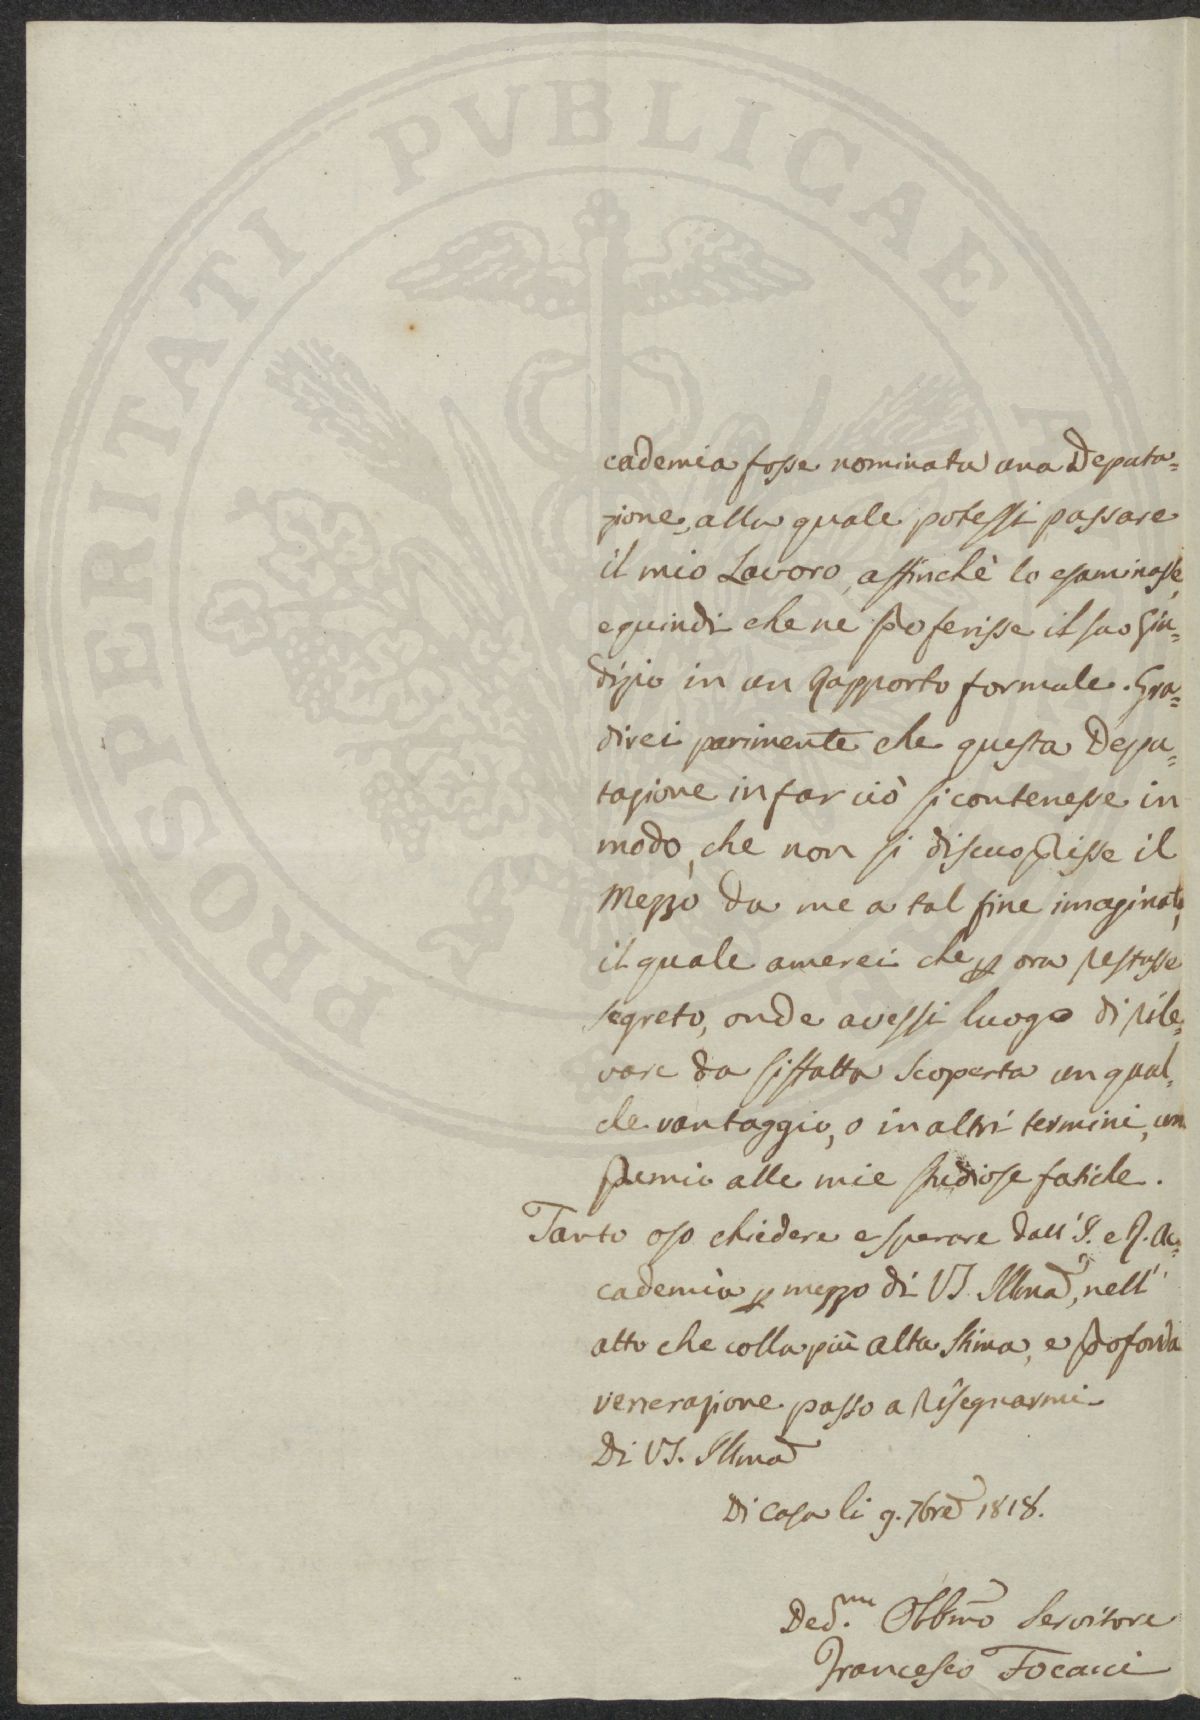 PROSPERITATI PVBLICAE A
cademia fosse nominata una Deputa=
zione, alla quale potessi passare
il mio Lavoro, affinchè lo esaminasse,
e quindi che ne proferisse il suo Giu=
dizio in un Rapporto formale. Gra=
direi parimente che questa Depu=
tazione in far ciò si contenesse in
modo, che non si discuoprisse il
Mezzo da me a tal fine imaginato,
il quale amerei che p ora restasse
segreto, onde avessi luogo di rile=
vare da siffatta scoperta un qual=
che vantaggio, o in altri termini, un
premio alle mie studiose fatiche.
Tanto oso chiedere e sperare dall'I. e R. Ac=
cademia p mezzo di VS. Illma, nell'
atto che colla più alta stima, e profonda
venerazione passo a risegnarmi
Di VS. Illma
Di Casa li 9. 7bre 1818.
Ded.mo Obbmo Servitore
Francesco Focacci